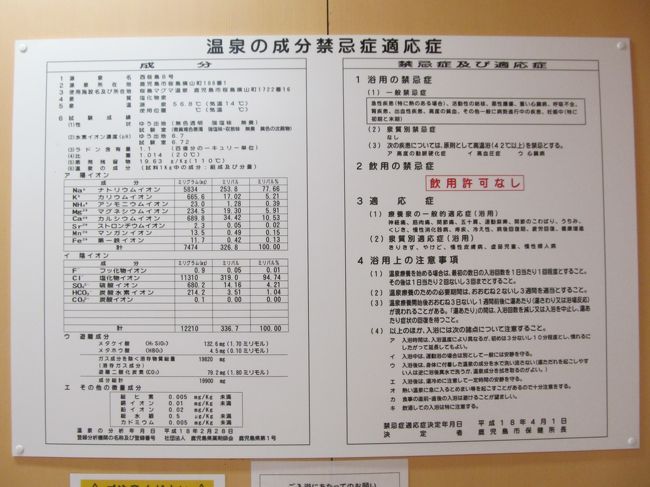 温泉の成分禁忌症適応症
成分
1 源泉名 西桜島8号
2 源泉所在地 鹿児島市桜島横山町188番1
3 使用施設名及び所在地 桜島マグマ温泉 鹿児島市桜島横山町1722番16
4 泉質 塩化物泉
5 泉温 源泉 56.8℃ (気温14℃)
使用位置 ℃ (気温 ℃)
6 試験成績
(1)性状 ゆう出地 (無色透明 強塩味 無臭)
(2)水素イオン濃度(pH) ゆう出地 6.7
試験室 6.72
(3)ラドン含有量 1.1 (百億分の一キュリー単位)
(4)比重 1.014 (20℃)
(5)蒸発残留物 19.63 g/Kg (110℃)
(6)温泉の成分 (試料1Kg中の成分;組成及び分量)
ア 陽イオン
成分 ミリグラム(mg) ミリバル ミリバル%
Na⁺ ナトリウムイオン 5834 253.8 77.66
K⁺ カリウムイオン 665.6 17.02 5.21
NH₄⁺ アンモニウムイオン 23.0 1.28 0.39
Mg²⁺ マグネシウムイオン 234.5 19.30 5.91
Ca²⁺ カルシウムイオン 689.8 34.42 10.53
Sr²⁺ ストロンチウムイオン 2.3 0.05 0.02
Mn²⁺ マンガンイオン 13.5 0.49 0.15
Fe²⁺ 第一鉄イオン 11.7 0.42 0.13
計 7474 326.8 100.00
イ 陰イオン
成分 ミリグラム(mg) ミリバル ミリバル%
F⁻ フッ化物イオン 0.9 0.05 0.01
Cl⁻ 塩化物イオン 11310 319.0 94.74
SO₄²⁻ 硫酸イオン 680.2 14.16 4.21
HCO₃⁻ 炭酸水素イオン 214.2 3.51 1.04
CO₃²⁻ 炭酸イオン 0.1 0.00 0.00
計 12210 336.7 100.00
ウ 遊離成分
メタケイ酸 (H₂SiO₃) 132.6 mg (1.70 ミリモル)
メタホウ酸 (HBO₂) 4.5 mg (0.10 ミリモル)
ガス成分を除く溶存物質総量 19820 mg
(溶存ガス成分)
遊離二酸化炭素(CO₂) 79.2 mg (1.80 ミリモル)
成分総計 19900 mg
エ その他の微量成分
総ヒ素 0.005 mg/Kg 未満
銅イオン 0.01 mg/Kg 未満
鉛イオン 0.02 mg/Kg 未満
総水銀 0.5 μg/Kg 未満
カドミウム 0.005 mg/Kg 未満
温泉の分析年月日 平成18年2月28日
登録分析機関の名称及び登録番号 社団法人 鹿児島県薬剤師会 鹿児島県第1号
禁忌症及び適応症
1 浴用の禁忌症
(1)一般禁忌症
急性疾患(特に熱のある場合)、活動性の結核、悪性腫瘍、重い心臓病、呼吸不全、
腎不全、出血性疾患、高度の貧血、その他一般に病勢進行中の疾患、妊娠中(特に
初期と末期)
(2)泉質別禁忌症
なし
(3)次の疾患については,原則として高温浴(42℃以上)を禁忌とする。
ア 高度の動脈硬化症 イ 高血圧症 ウ 心臓病
2 飲用の禁忌症
飲用許可なし
3 適応症
(1)療養泉の一般的適応症(浴用)
神経痛、筋肉痛、関節痛、五十肩、運動麻痺、関節のこわばり、うちみ、
くじき、慢性消化器病、痔疾、冷え性、病後回復期、疲労回復、健康増進
(2)泉質別適応症(浴用)
きりきず、やけど、慢性皮膚病、虚弱児童、慢性婦人病
4 浴用上の注意事項
(1)温泉療養を始める場合は、最初の数日の入浴回数を1日当たり1回程度とすること。
その後は1日当たり2回ないし3回までとすること。
(2)温泉療養のための必要期間は、おおむね2ないし3週間を適当とすること。
(3)温泉療養開始後おおむね3日ないし1週間前後に湯あたり(湯さわり又は浴場反応)
が現われることがある。「湯あたり」の間は、入浴回数を減じ又は入浴を中止し、湯あ
たり症状の回復を待つこと。
(4)以上のほか、入浴には次の諸点について注意すること。
ア 入浴時間は、入浴温度により異なるが、初めは3分ないし10分程度とし、慣れるに
したがって延長してもよい。
イ 入浴中は、運動浴の場合は別として一般には安静を守る。
ウ 入浴後は、身体に付着した温泉の成分を水で洗い流さない(湯ただれを起こしやす
い人は逆に浴後真水で洗うか、温泉成分を拭き取るのがよい。)
エ 入浴後は、湯冷めに注意して一定時間の安静を守る。
オ 熱い温泉に急に入るとめまい等を起こすことがあるので十分注意をする。
カ 食事の直前・直後の入浴は避けることが望ましい。
キ 飲酒しての入浴は特に注意する。
禁忌症適応症決定年月日 平成18年4月1日
決定者 鹿児島市保健所長
ご入浴にあたってのお願い